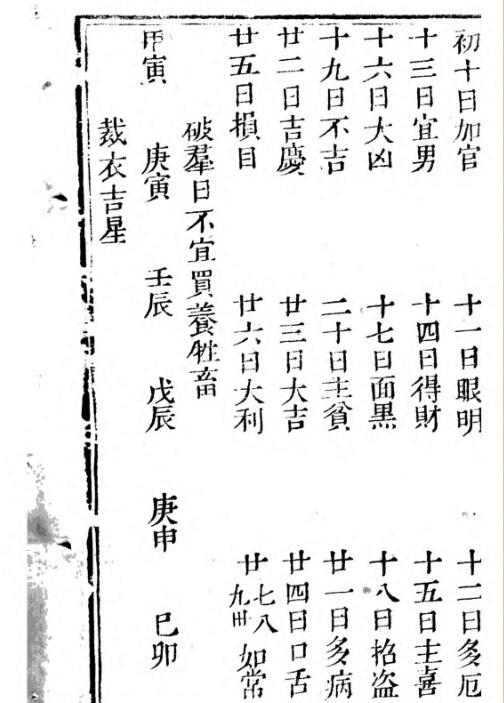 初十日加官 十一日眼明 十二日多厄
十三日宜男 十四日得財 十五日主喜
十六日大凶 十七日面黑 十八日招盗
十九日不吉 二十日主貧 廿一日多病
廿二日吉慶 廿三日大吉 廿四日口舌
廿五日損目 廿六日大利 廿七八九卅如常
破羣日不宜買養牲畜
甲寅 庚寅 壬辰 戊辰 庚申 巳卯
裁衣吉星